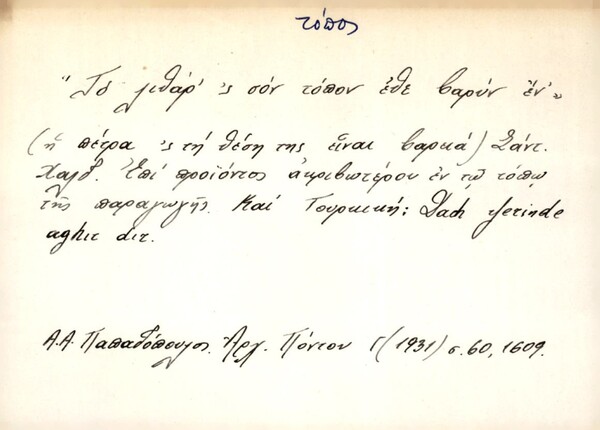 τόπος
"Τὸ λιθάρ' 'ς σὸν τόπον ἀθε βαρὺν ἔν'"
(ἡ πέτρα 'ς τὴ θέση της εἶναι βαρειά) Σάντ.
Χαλδ. Ἐπὶ προϊόντος ἀκριβωτέρου ἐν τῷ τόπῳ
τῆς παραγωγῆς. Καὶ Τουρκική: Dach yerinde
aghir dir.
Α.Α. Παπαδόπουλος. Ἀρχ. Πόντου Γ (1931) σ. 60, 1609.